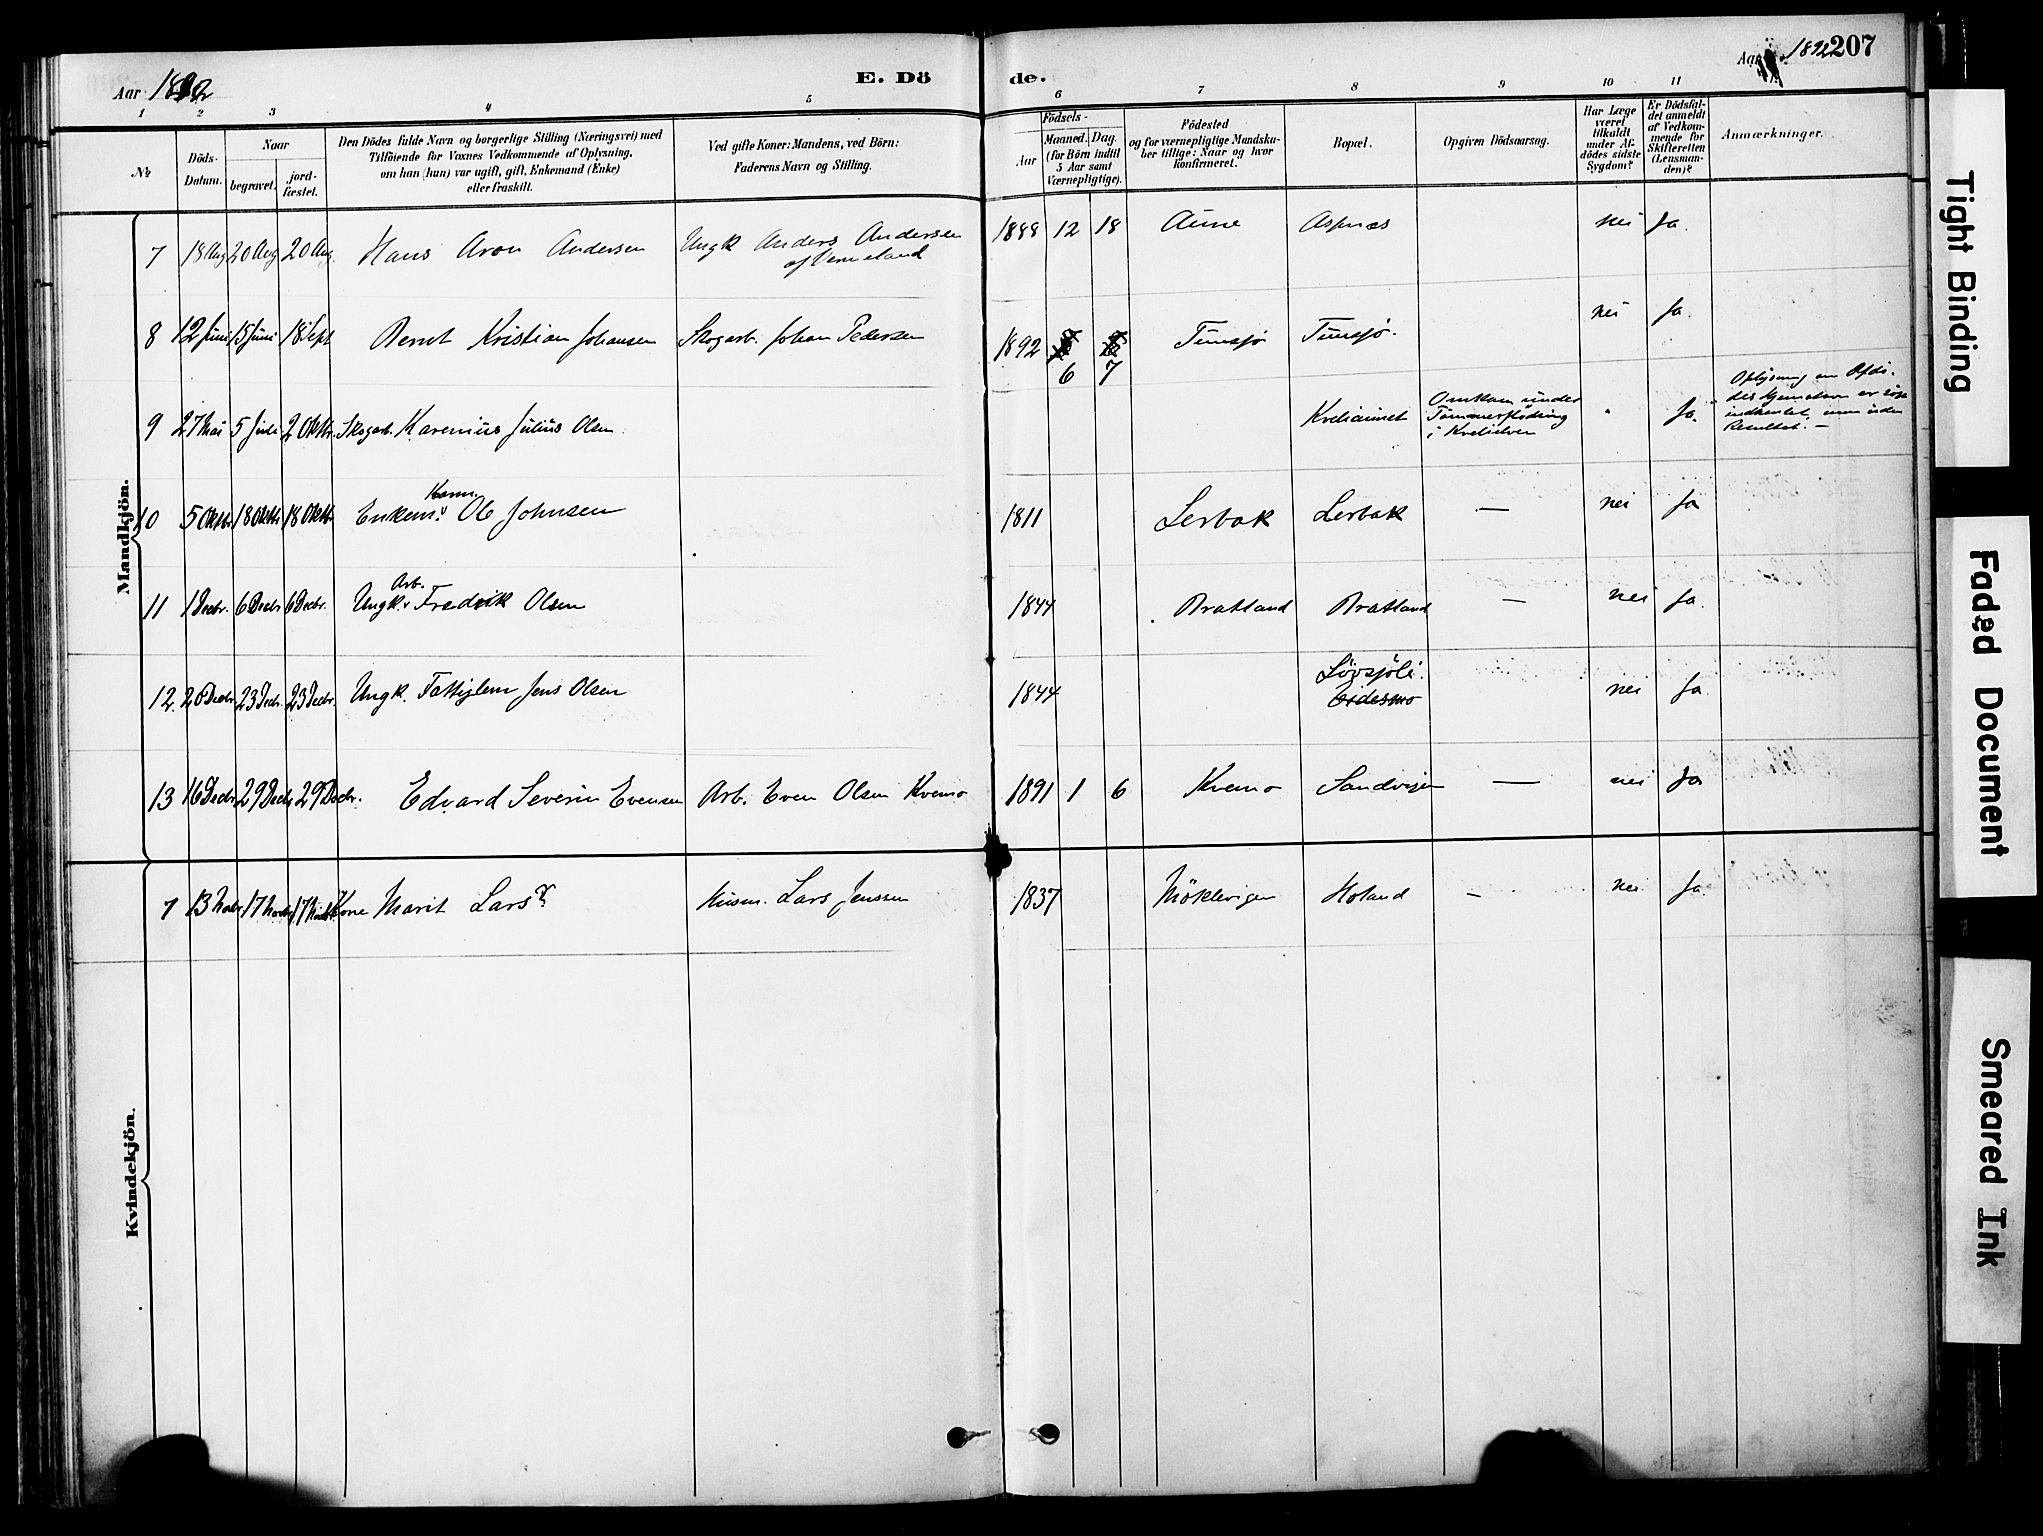 Aar 1892
E. Dö
de.
Aar 1892
207
1 2 3 4 5 6 7 8 9 10 11
No
Döds-
Datum.
Naar
begravet.
jord-
fæstet.
Den Dödes fulde Navn og borgerlige Stilling (Næringsvei) med
Tilföiende for Voxnes Vedkommende af Oplysning,
om han (hun) var ugift, gift, Enkemand (Enke)
eller fraskilt.
Ved gifte Koner: Mandens, ved Börn:
Faderens Navn og Stilling.
Födsels-
Aar
Maaned. Dag.
(for Börn indtil
5 Aar samt
Værnepligtige).
Födested
og for værnepligtige Mandska-
ber tillige: Naar og hvor
konfirmeret.
Bopæl.
Opgiven Dödsaarsag.
Har Læge
været
tilkaldt
under Af-
dödes sidste
Sygdom?
Er Dödsfal-
det anmeldt
af Vedkom-
mende for
Skifteretten
(Lensman-
den)?
Anmærkninger.
Mandkjön.
7 18 Aug 20 Aug 20 Aug. Hans Aron Andersen Ungk Anders Andersen 1888 12 18 Aune Aspnes nei Ja.
8 12 Juni 15 Juni 18 Sept Bernt Kristian Johansen Skogarb. Johan Pedersen 1892 6 7 Tunsjø Tunsjø. nei Ja.
9 27 Mai 5 Juli 2 Oktbr. Skogarb. Karenius Julius Olsen Kvelianiet Omkom under
Tømmerflødning
i Kvelielven " Ja.
10 5 Oktbr 18 Oktbr 18 Oktbr Enkem. Ole Johnsen 1811 Lerbak Lerbak — nei Ja
11 1 Decbr. 6 Decbr 6 Decbr. Ungk. Arb. Fredrik Olsen 1844 Bratland Bratland — nei Ja.
12. 20 Decbr. 23 Decbr. 23 Decbr. Ungk. Fattiglem Jens Olsen 1844 Løvsjöli. nei Ja
13 16 Decbr 29 Decbr 29 Decbr. Edvard Severin Evensen Arb. Even Olsen Kvemo 1891 1 6 Kvemo Sandvigen — nei Ja
Kvindekjön.
7 13 Novbr 17 Novbr 17 Novbr Kone Marit Larsdr Husm. Lars Jenssen 1837 Møklevigen Holand - nei Ja.
Tight Binding
Faded Document
Smeared Ink